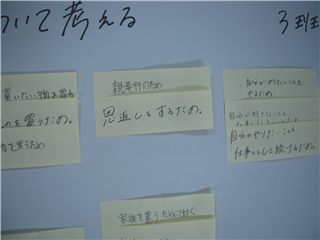 ついて考える
3班
買いたい物を買う
を買うため。
を買うため
親孝行のため
恩返しをするため。
自分がやりたいことを
やるため
自分のやりたいことを
仕事として続けるため。
家族を養うために働く